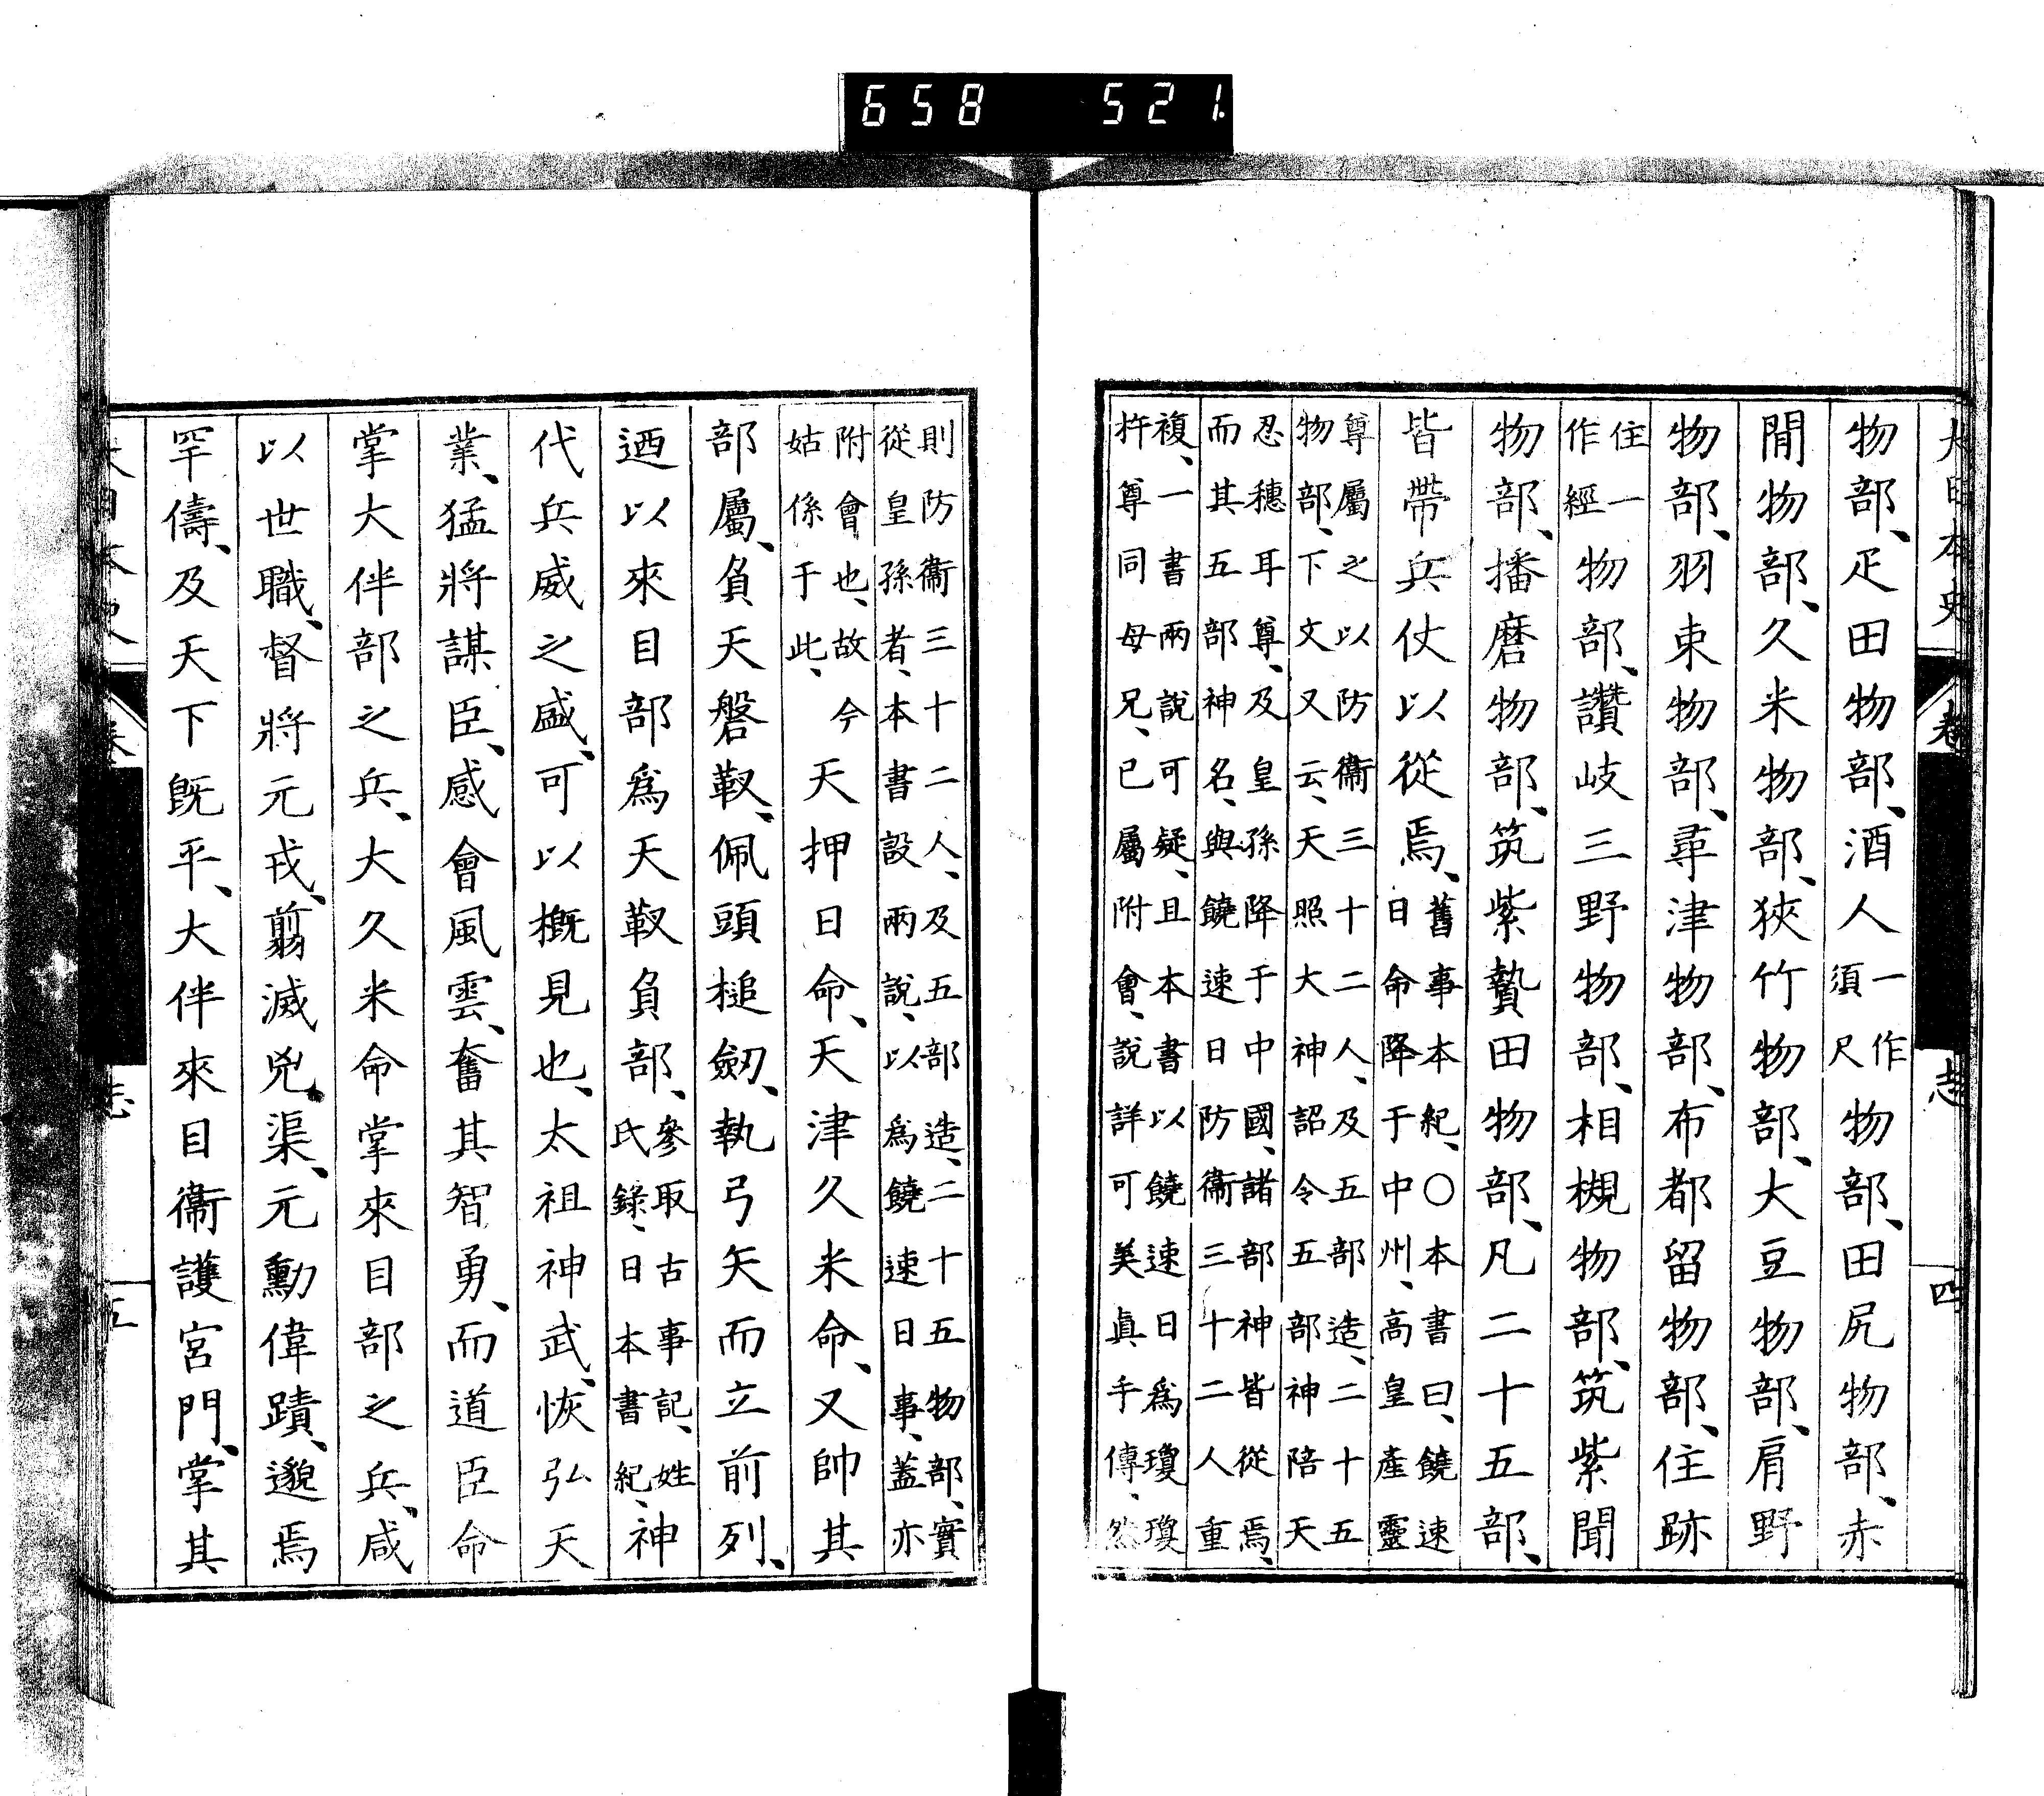 658 521
大日本史 卷 志 四
物部、疋田物部、酒人一作須尺物部、田尻物部、赤
間物部、久米物部、狹竹物部、大豆物部、肩野
物部、羽束物部、尋津物部、布都留物部、住跡
住一作經物部、讚岐三野物部、相槻物部、筑紫聞
物部、播磨物部、筑紫贄田物部、凡二十五部、
皆帶兵仗以從焉、舊事本紀、○本書曰、饒速日命降于中州、高皇產靈
尊屬之以防衞三十二人、及五部造、二十五物部、下文又云、天照大神詔令五部神陪天
忍穗耳尊、及皇孫降于中國、諸部神皆從焉、而其五部神名、與饒速日防衞三十二人重
複、一書兩說可疑、且本書以饒速日爲瓊瓊杵尊同母兄、已屬附會、說詳可美眞手傳、然
則防衞三十二人、及五部造、二十五物部、實從皇孫者、本書設兩說、以爲饒速日事、蓋亦
附會也、故今姑係于此、天押日命、天津久米命、又帥其
部屬、負天磐靫、佩頭槌劒、執弓矢而立前列、
迺以來目部爲天靫負部、參取古事記、姓氏錄、日本書紀、神
代兵威之盛、可以概見也、太祖神武、恢弘天
業、猛將謀臣、感會風雲、奮其智勇、而道臣命
掌大伴部之兵、大久米命掌來目部之兵、咸
以世職、督將元戎、翦滅兇渠、元勳偉蹟、邈焉
罕儔、及天下既平、大伴來目衞護宮門、掌其
卷 志 五